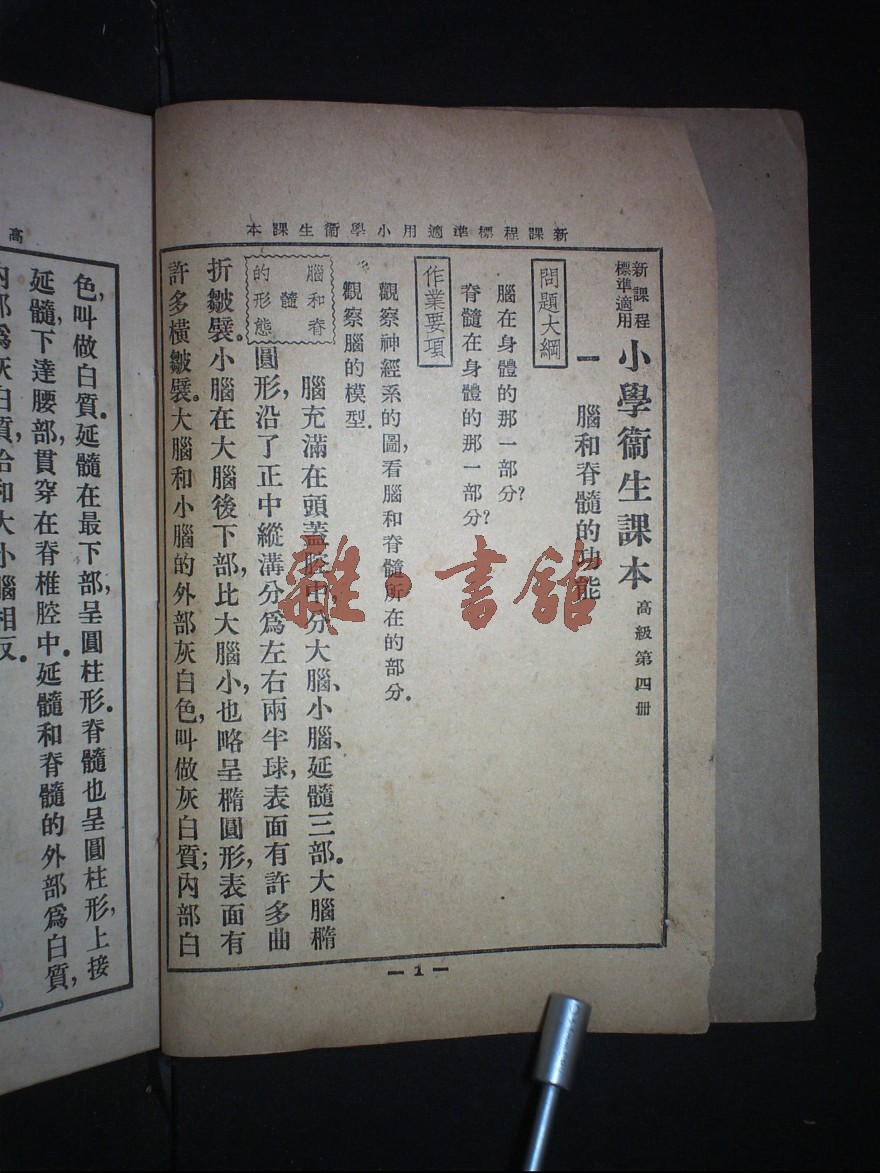 本課生衞學小用適準標程課新
新課程
標準適用
小學衞生課本
高級第四册
一　腦和脊髓的功能
問題大綱
腦在身體的那一部分?
脊髓在身體的那一部分?
作業要項
觀察神經系的圖,看腦和脊髓所在的部分.
觀察腦的模型.
腦和脊
髓
的形態
腦充滿在頭蓋腔中,分大腦、小腦、延髓三部.大腦橢
圓形,沿了正中縱溝分爲左右兩半球,表面有許多曲
折皺襞.小腦在大腦後下部,比大腦小,也略呈橢圓形,表面有
許多橫皺襞.大腦和小腦的外部灰白色,叫做灰白質;內部白
— 1 —
高
色,叫做白質.延髓在最下部,呈圓柱形.脊髓也呈圓柱形,上接
延髓,下達腰部,貫穿在脊椎腔中.延髓和脊髓的外部爲白質,
內部爲灰白質,恰和大小腦相反.
雜·書館